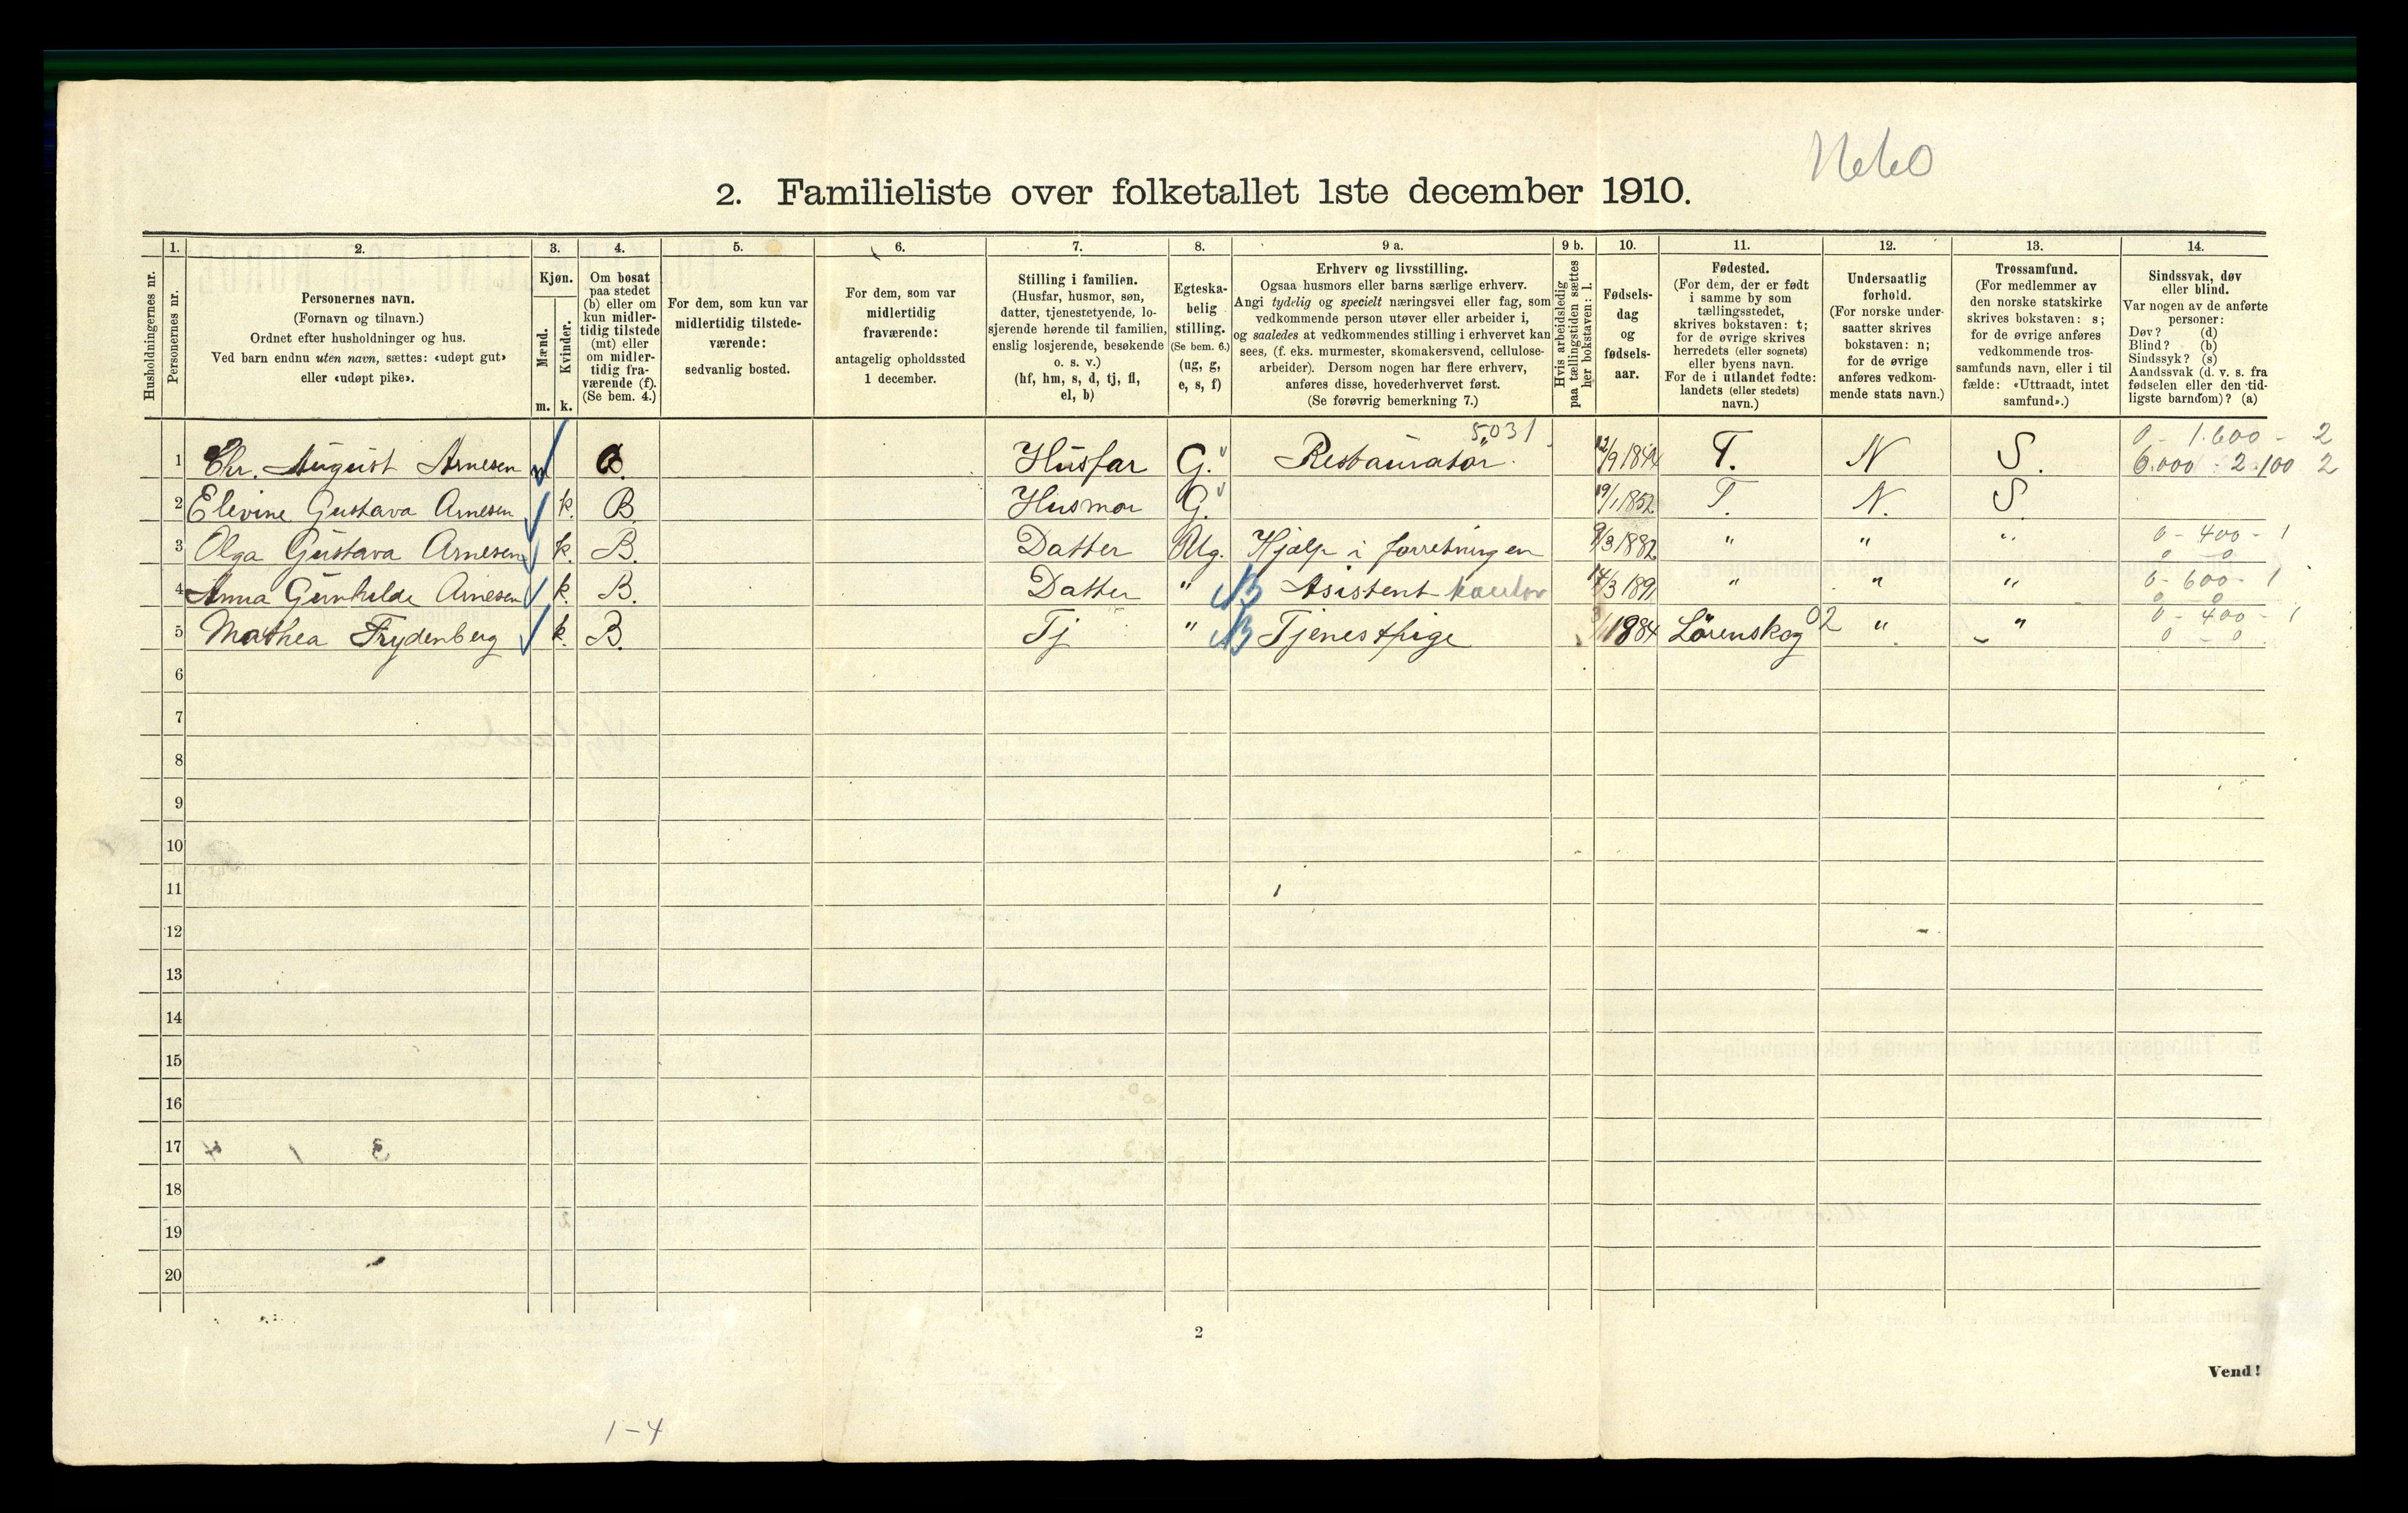 2. Familieliste over folketallet 1ste december 1910.
Husholdningernes nr.
1. Personernes nr.
2. Personernes navn.
(Fornavn og tilnavn.)
Ordnet efter husholdninger og hus.
Ved barn endnu uten navn, sættes: «udøpt gut»
eller «udøpt pike».
3. Kjøn.
Mænd. m.
Kvinder. k.
4. Om bosat
paa stedet
(b) eller om
kun midler-
tidig tilstede
(mt) eller
om midler-
tidig fra-
værende (f).
(Se bem. 4.)
5. For dem, som kun var
midlertidig tilstede-
værende:
sedvanlig bosted.
6. For dem, som var
midlertidig
fraværende:
antagelig opholdssted
1 december.
7. Stilling i familien.
(Husfar, husmor, søn,
datter, tjenestetyende, lo-
sjerende hørende til familien,
enslig losjerende, besøkende
o. s. v.)
(hf, hm, s, d, tj, fl,
el, b)
8. Egteska-
belig
stilling.
(Se bem. 6.)
(ug, g,
e, s, f)
9 a. Erhverv og livsstilling.
Ogsaa husmors eller barns særlige erhverv.
Angi tydelig og specielt næringsvei eller fag, som
vedkommende person utøver eller arbeider i,
og saaledes at vedkommendes stilling i erhvervet kan
sees, (f. eks. murmester, skomakersvend, cellulose-
arbeider). Dersom nogen har flere erhverv,
anføres disse, hovederhvervet først.
(Se forøvrig bemerkning 7.)
9 b. Hvis arbeidsledig
paa tællingstiden sættes
her bokstaven: l.
10. Fødsels-
dag
og
fødsels-
aar.
11. Fødested.
(For dem, der er født
i samme by som
tællingsstedet,
skrives bokstaven: t;
for de øvrige skrives
herredets (eller sognets)
eller byens navn.
For de i utlandet fødte:
landets (eller stedets)
navn.)
12. Undersaatlig
forhold.
(For norske under-
saatter skrives
bokstaven: n;
for de øvrige
anføres vedkom-
mende stats navn.)
13. Trossamfund.
(For medlemmer av
den norske statskirke
skrives bokstaven: s;
for de øvrige anføres
vedkommende tros-
samfunds navn, eller i til
fælde: «Uttraadt, intet
samfund».)
14. Sindssvak, døv
eller blind.
Var nogen av de anførte
personer:
Døv? (d)
Blind? (b)
Sindssyk? (s)
Aandssvak (d. v. s. fra
fødselen eller den tid-
ligste barndom)? (a)
5031 0 - 1.600 - 2
1 Chr. August Arnesen m B. Husfar G. Restauratør. 12/9 1844 T. N S. 6.000 - 2.100 2
2 Elevine Gustava Arnesen k. B. Husmor G. 19/1 1852 T. N. S.
3 Olga Gustava Arnesen k. B. Datter Ug. Hjælp i forretningen 9/3 1882 " " " 0 - 400 - 1
0 0
4 Anna Gunhilde Arnesen k. B. Datter " Asistent kontor 14/3 1891 " " " 0 - 600 - 1
0 0
5 Mathea Frydenberg k. B. Tj " Tjenestpige 1884 Lörenskog 02 " " 0 - 400 - 1
0 - 0
6
7
8
9
10
11
12
13
14
15
16
17
18
19
20
2
Vend!
1-4